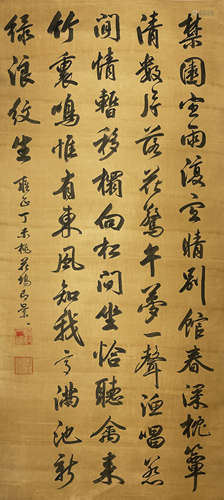 禁園宜雨復宜晴別館春深枕簟
清數片落花驚午夢一聲漁唱惹
閒情暫移榻向松間坐恰聽禽來
竹裏鳴惟有東風知我意滿池新
綠浪紋生
雍正丁未桃花塢即景